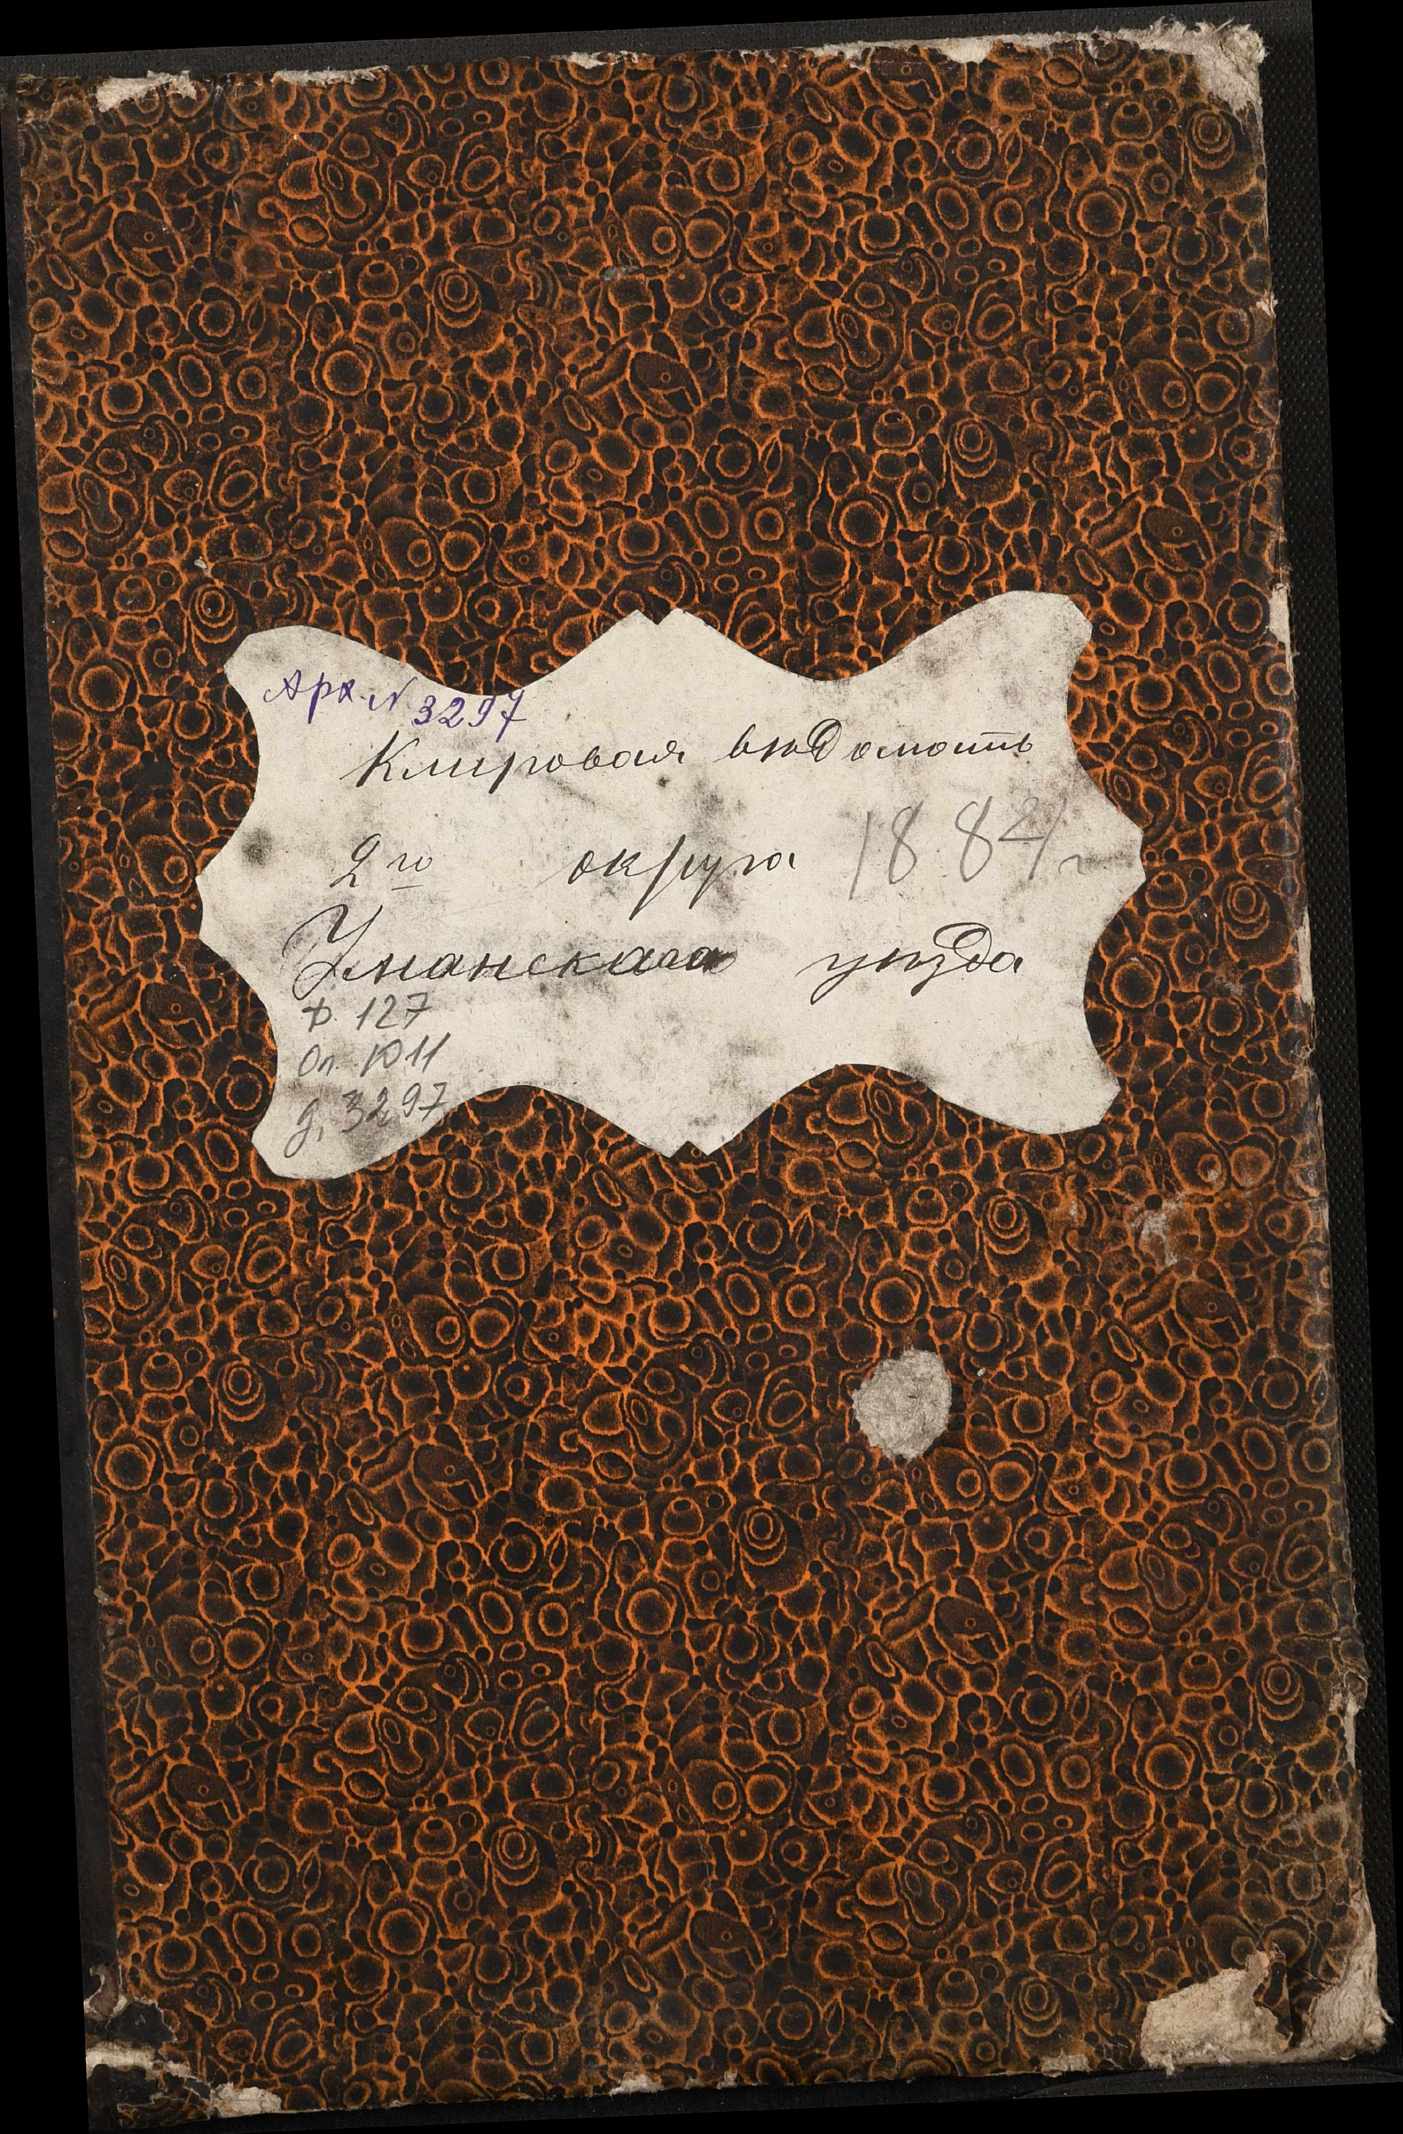 Арх. N 3297
Клировая вѣдомость
2го округа 1884 г
Уманскаго уѣзда
Ф. 127
Оп. 1011
д. 3297